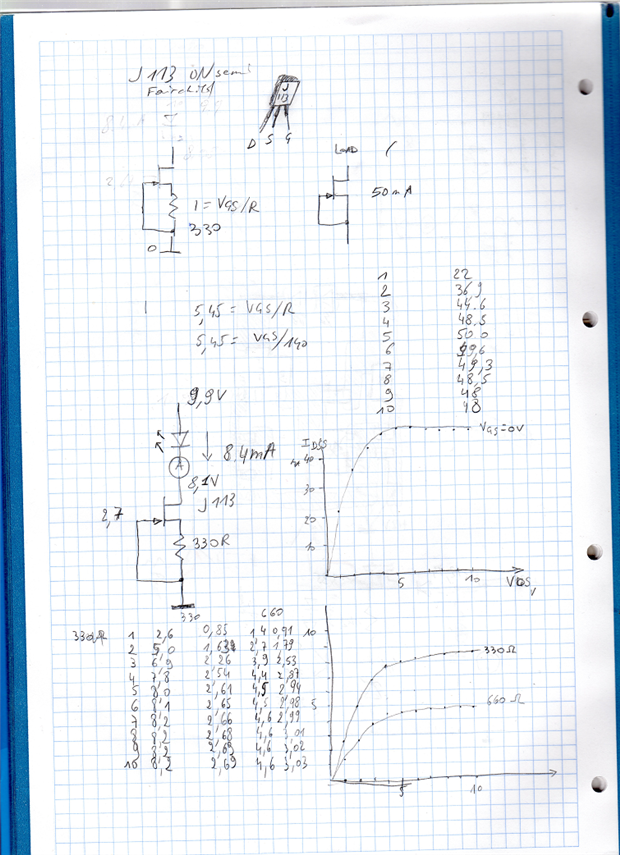 J 113 ON semi
Fairchild
J
113
D S G
LOAD
50mA
I = VGS/R
330
0
5,45 = VGS/R
5,45 = VGS/140
1 22
2 36,9
3 44.6
4 48.5
5 50 0
6 49,6
7 49,3
8 48,5
9 48
10 48
9,9V
A
8.4mA
8,1V
J 113
2,7
330R
IDSS
40
30
20
10
VGS=0V
5 10 VDS
V
330 660
330R 1 2,6 0,85 1 4 0,91
2 5,0 1,63 2,7 1,79
3 6,9 2,26 3,9 2,53
4 7,8 2,54 4,4 2,87
5 8,0 2,61 4,5 2,94
6 8,1 2,65 4,5 2,98
7 8,2 2,66 4,6 2,99
8 8,2 2,68 4,6 3,01
9 8,2 2,69 4,6 3,02
10 8,2 2,69 4,6 3,03
10
5
330 Ω
660 Ω
5 10